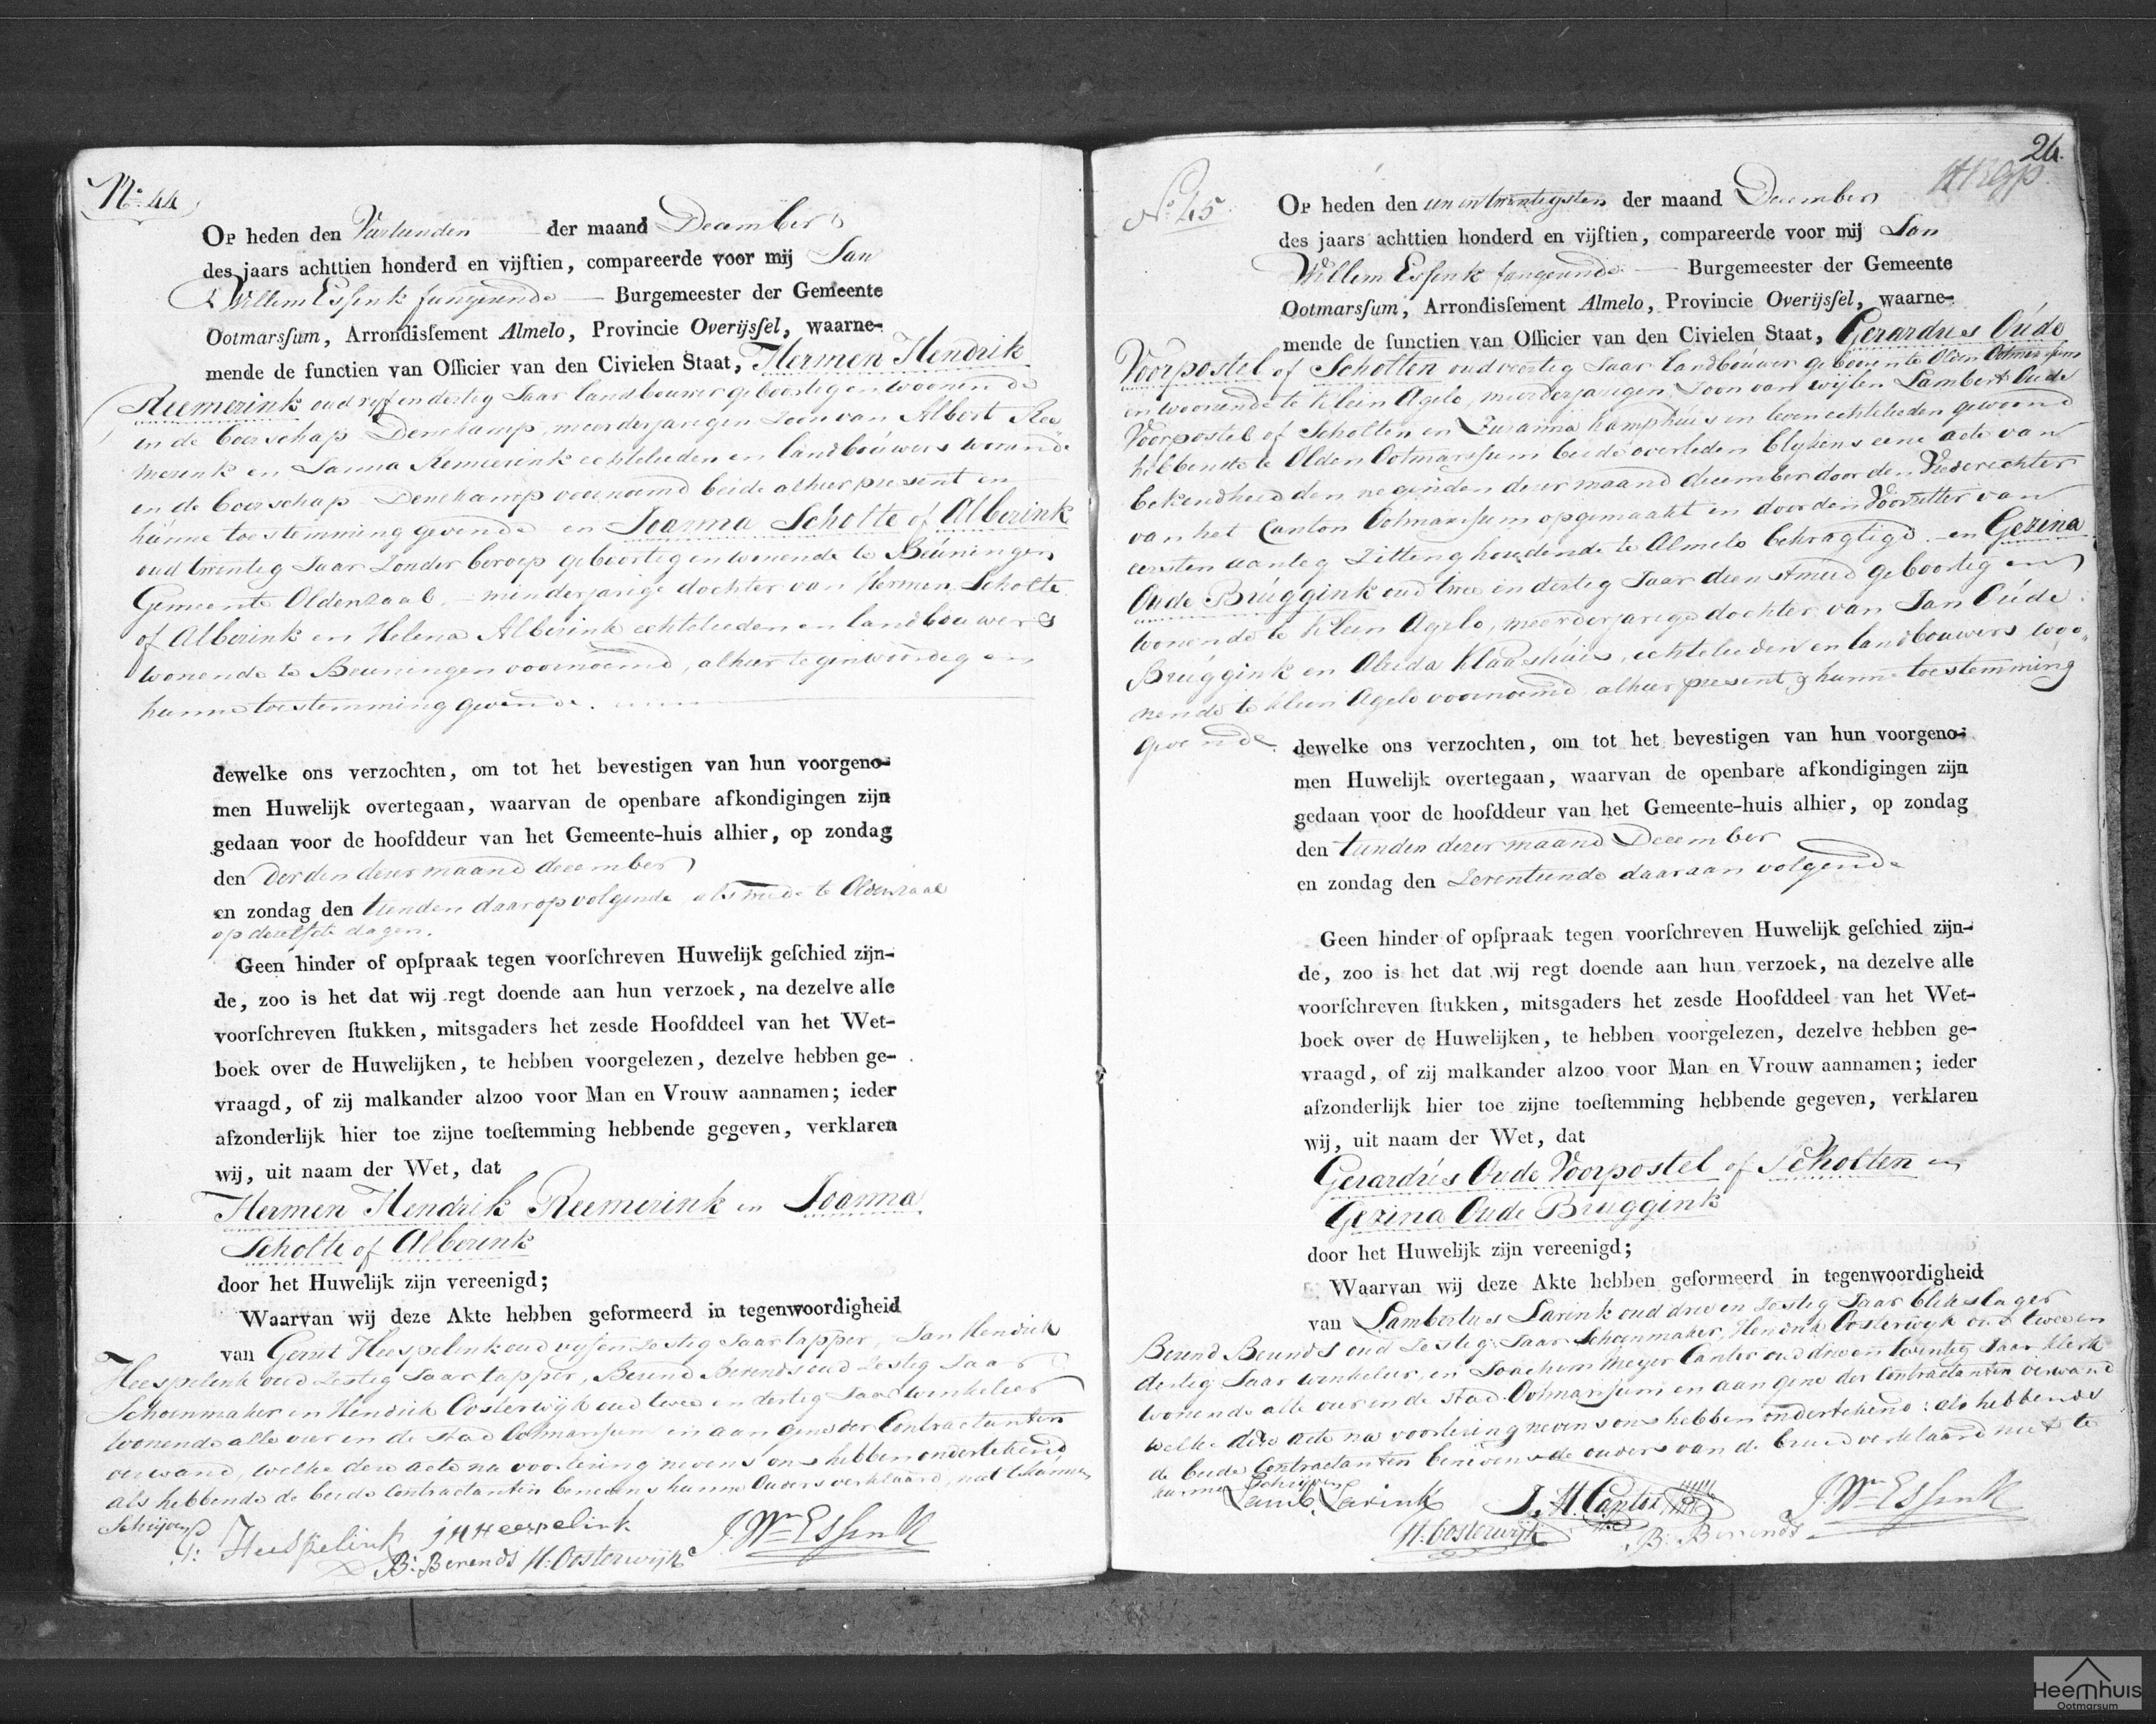 No. 44
Op heden den Veertienden der maand December
des jaars achttien honderd en vijftien, compareerde voor mij Jan
Willem Essink fungerende Burgemeester der Gemeente
Ootmarsſum, Arrondisſement Almelo, Provincie Overijsſel, waarne-
mende de functien van Officier van den Civielen Staat, Hermen Hendrik
Reemerink oud vyf en dertig Jaar landbouwer geboortig en woonende
in de boerschap Denekamp, meerderjarigen Zoon van Albert Ree
merink en Janna Remmerink echtelieden en landbouwers woonende
in de boerschap Denekamp voornoemd beide alhier present en
hunne toestemming gevende en Joanna Scholte of Alberink
oud twintig Jaar Zonder beroep geboortig en wonende te Beuningen
Gemeente Oldenzaal, minderjarige dochter van Hermen Scholte
of Alberink en Helena Alberink echtelieden en landbouwers
wonende te Beuningen voornoemd, alhier tegenwoordig en
hunne toestemming gevende.
dewelke ons verzochten, om tot het bevestigen van hun voorgeno-
men Huwelijk overtegaan, waarvan de openbare afkondigingen zijn
gedaan voor de hoofddeur van het Gemeente-huis alhier, op zondag
den derden dezer maand december
en zondag den tienden daarop volgende alsmede te Oldenzaal
op dezelfde dagen.
Geen hinder of opſpraak tegen voorſchreven Huwelijk geſchied zijn-
de, zoo is het dat wij regt doende aan hun verzoek, na dezelve alle
voorſchreven ſtukken, mitsgaders het zesde Hoofddeel van het Wet-
boek over de Huwelijken, te hebben voorgelezen, dezelve hebben ge-
vraagd, of zij malkander alzoo voor Man en Vrouw aannamen; ieder
afzonderlijk hier toe zijne toeſtemming hebbende gegeven, verklaren
wij, uit naam der Wet, dat
Hermen Hendrik Reemerink en Joanna
Scholte of Alberink
door het Huwelijk zijn vereenigd;
Waarvan wij deze Akte hebben geformeerd in tegenwoordigheid
van Gerrit Heespelink oud vyf en Zestig Jaar tapper, Jan Hendrik
Heespelink oud Zestig Jaar tapper, Berend Berends oud Zestig Jaar
Schoenmaker en Hendrik Oosterwijk oud twee en dertig Jaar winkelier
wonende alle vier in de stad Ootmarssum en aan gene der Contractanten
verwand, welke deze acte na voorlezing nevens ons hebben ondertekend
als hebbende de beide Contractanten benevens hunne Ouders verklaard, niet te kunnen
Schrijven
G: Heespelink J H Heespelink J. Wm Essink
B: Berends H: Oosterwijk
26.
No. 45
Op heden den een en twintigsten der maand December
des jaars achttien honderd en vijftien, compareerde voor mij Jan
Willem Essink fungerende Burgemeester der Gemeente
Ootmarsſum, Arrondisſement Almelo, Provincie Overijsſel, waarne-
mende de functien van Officier van den Civielen Staat, Gerardus Oude
Voorpostel of Scholten oud veertig Jaar Landbouwer geboren te Olden Ootmarssum
en woonende te Klein Agelo, meerderjarigen Zoon van wijlen Lambert Oude
Voorpostel of Scholten en Zusanna Kamphuis in leven echtelieden gewoond
hebbende te Olden Ootmarssum beide overleden blykens eene acte van
bekendheid den negenden dezer maand december door den Vrederechter
van het Canton Ootmarssum opgemaakt en door den Voorzitter van
eersten aanleg Zitting houdende te Almelo bekragtigd. en Gezina
Oude Bruggink oud twee en dertig Jaar dienstmeid geboortig en
wonende te Klein Agelo, meerderjarige dochter van Jan Oude
Bruggink en Aleida Klaashuis, echtelieden en landbouwers woo-
nende te Klein Agelo voornoemd alhier present & hunne toestemming
gevende.
dewelke ons verzochten, om tot het bevestigen van hun voorgeno-
men Huwelijk overtegaan, waarvan de openbare afkondigingen zijn
gedaan voor de hoofddeur van het Gemeente-huis alhier, op zondag
den tienden dezer maand December
en zondag den Zeventiende daaraan volgende
Geen hinder of opſpraak tegen voorſchreven Huwelijk geſchied zijn-
de, zoo is het dat wij regt doende aan hun verzoek, na dezelve alle
voorſchreven ſtukken, mitsgaders het zesde Hoofddeel van het Wet-
boek over de Huwelijken, te hebben voorgelezen, dezelve hebben ge-
vraagd, of zij malkander alzoo voor Man en Vrouw aannamen; ieder
afzonderlijk hier toe zijne toeſtemming hebbende gegeven, verklaren
wij, uit naam der Wet, dat
Gerardus Oude Voorpostel of Scholten en
Gezina Oude Bruggink
door het Huwelijk zijn vereenigd;
Waarvan wij deze Akte hebben geformeerd in tegenwoordigheid
van Lambertus Larink oud drie en Zestig Jaar blikslager
Berend Berends oud Zestig Jaar Schoenmaker, Hendrik Oosterwijk oud twee en
dertig Jaar winkelier, en Joachim Meyer Canter oud drie en twintig Jaar klerk
wonende alle vier in de stad Ootmarssum en aan gene der Contractanten verwand
welke deze acte na voorlezing nevens ons hebben ondertekend: als hebbende
de beide Contractanten benevens de ouders van de bruid verklaard niet te
kunnen Schrijven
Lamb. Larink J. M. Canter J. Wm Essink
H: Oosterwijk B: Berends
Heemhuis
Ootmarsum